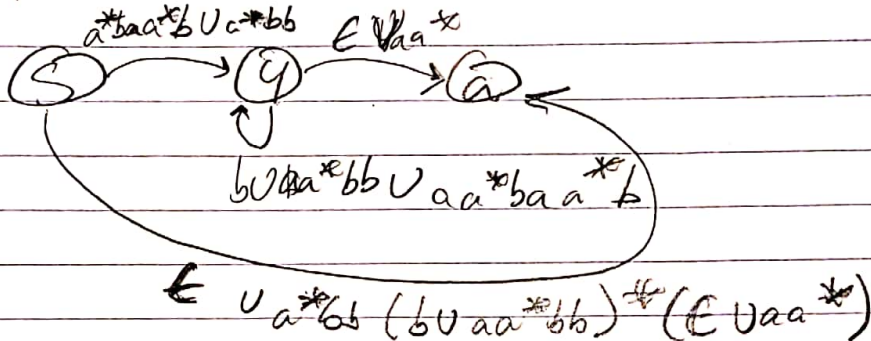 a*baa*b∪a*bb ∈∪aa*
S q a
b∪aa*bb∪aa*baa*b
∈ ∪a*bb(b∪aa*bb)*(∈∪aa*)